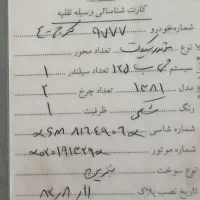 کارت شناسائی وسیله نقلیه
شماره خودرو ۹۷۷۷ کرج - ۴
نوع موتورسیکلت تعداد محور
سیستم ۱۲۵ تعداد سیلندر ۱
مدل ۱۳۸۱ تعداد چرخ ۲
رنگ مشکی ظرفیت ۱
شماره شاسی
شماره موتور
نوع سوخت بنزین
تاریخ نصب پلاک ۸۲٫۸٫۱۱